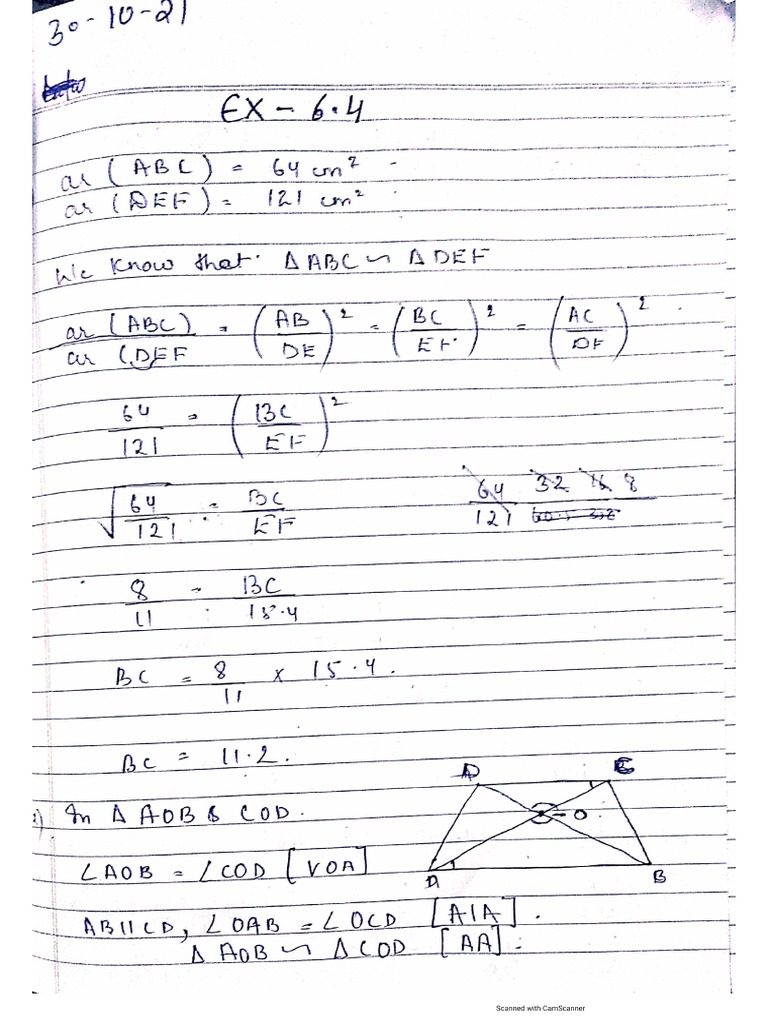 30-10-21
EX - 6.4
ar (ABC) = 64 cm²
ar (DEF) = 121 cm²
We know that. Δ ABC ∽ Δ DEF
ar (ABC)/ar (DEF = (AB/DE)² = (BC/EF)² = (AC/DF)²
64/121 = (BC/EF)²
√64/121 = BC/EF
64/121 32 16 8
8/11 = BC/15.4
BC = 8/11 x 15.4.
BC = 11.2.
D C
O
A B
In Δ AOB & COD.
∠AOB = ∠COD [VOA]
AB||CD, ∠OAB = ∠OCD [AIA].
Δ AOB ∽ ΔCOD [AA].
Scanned with CamScanner